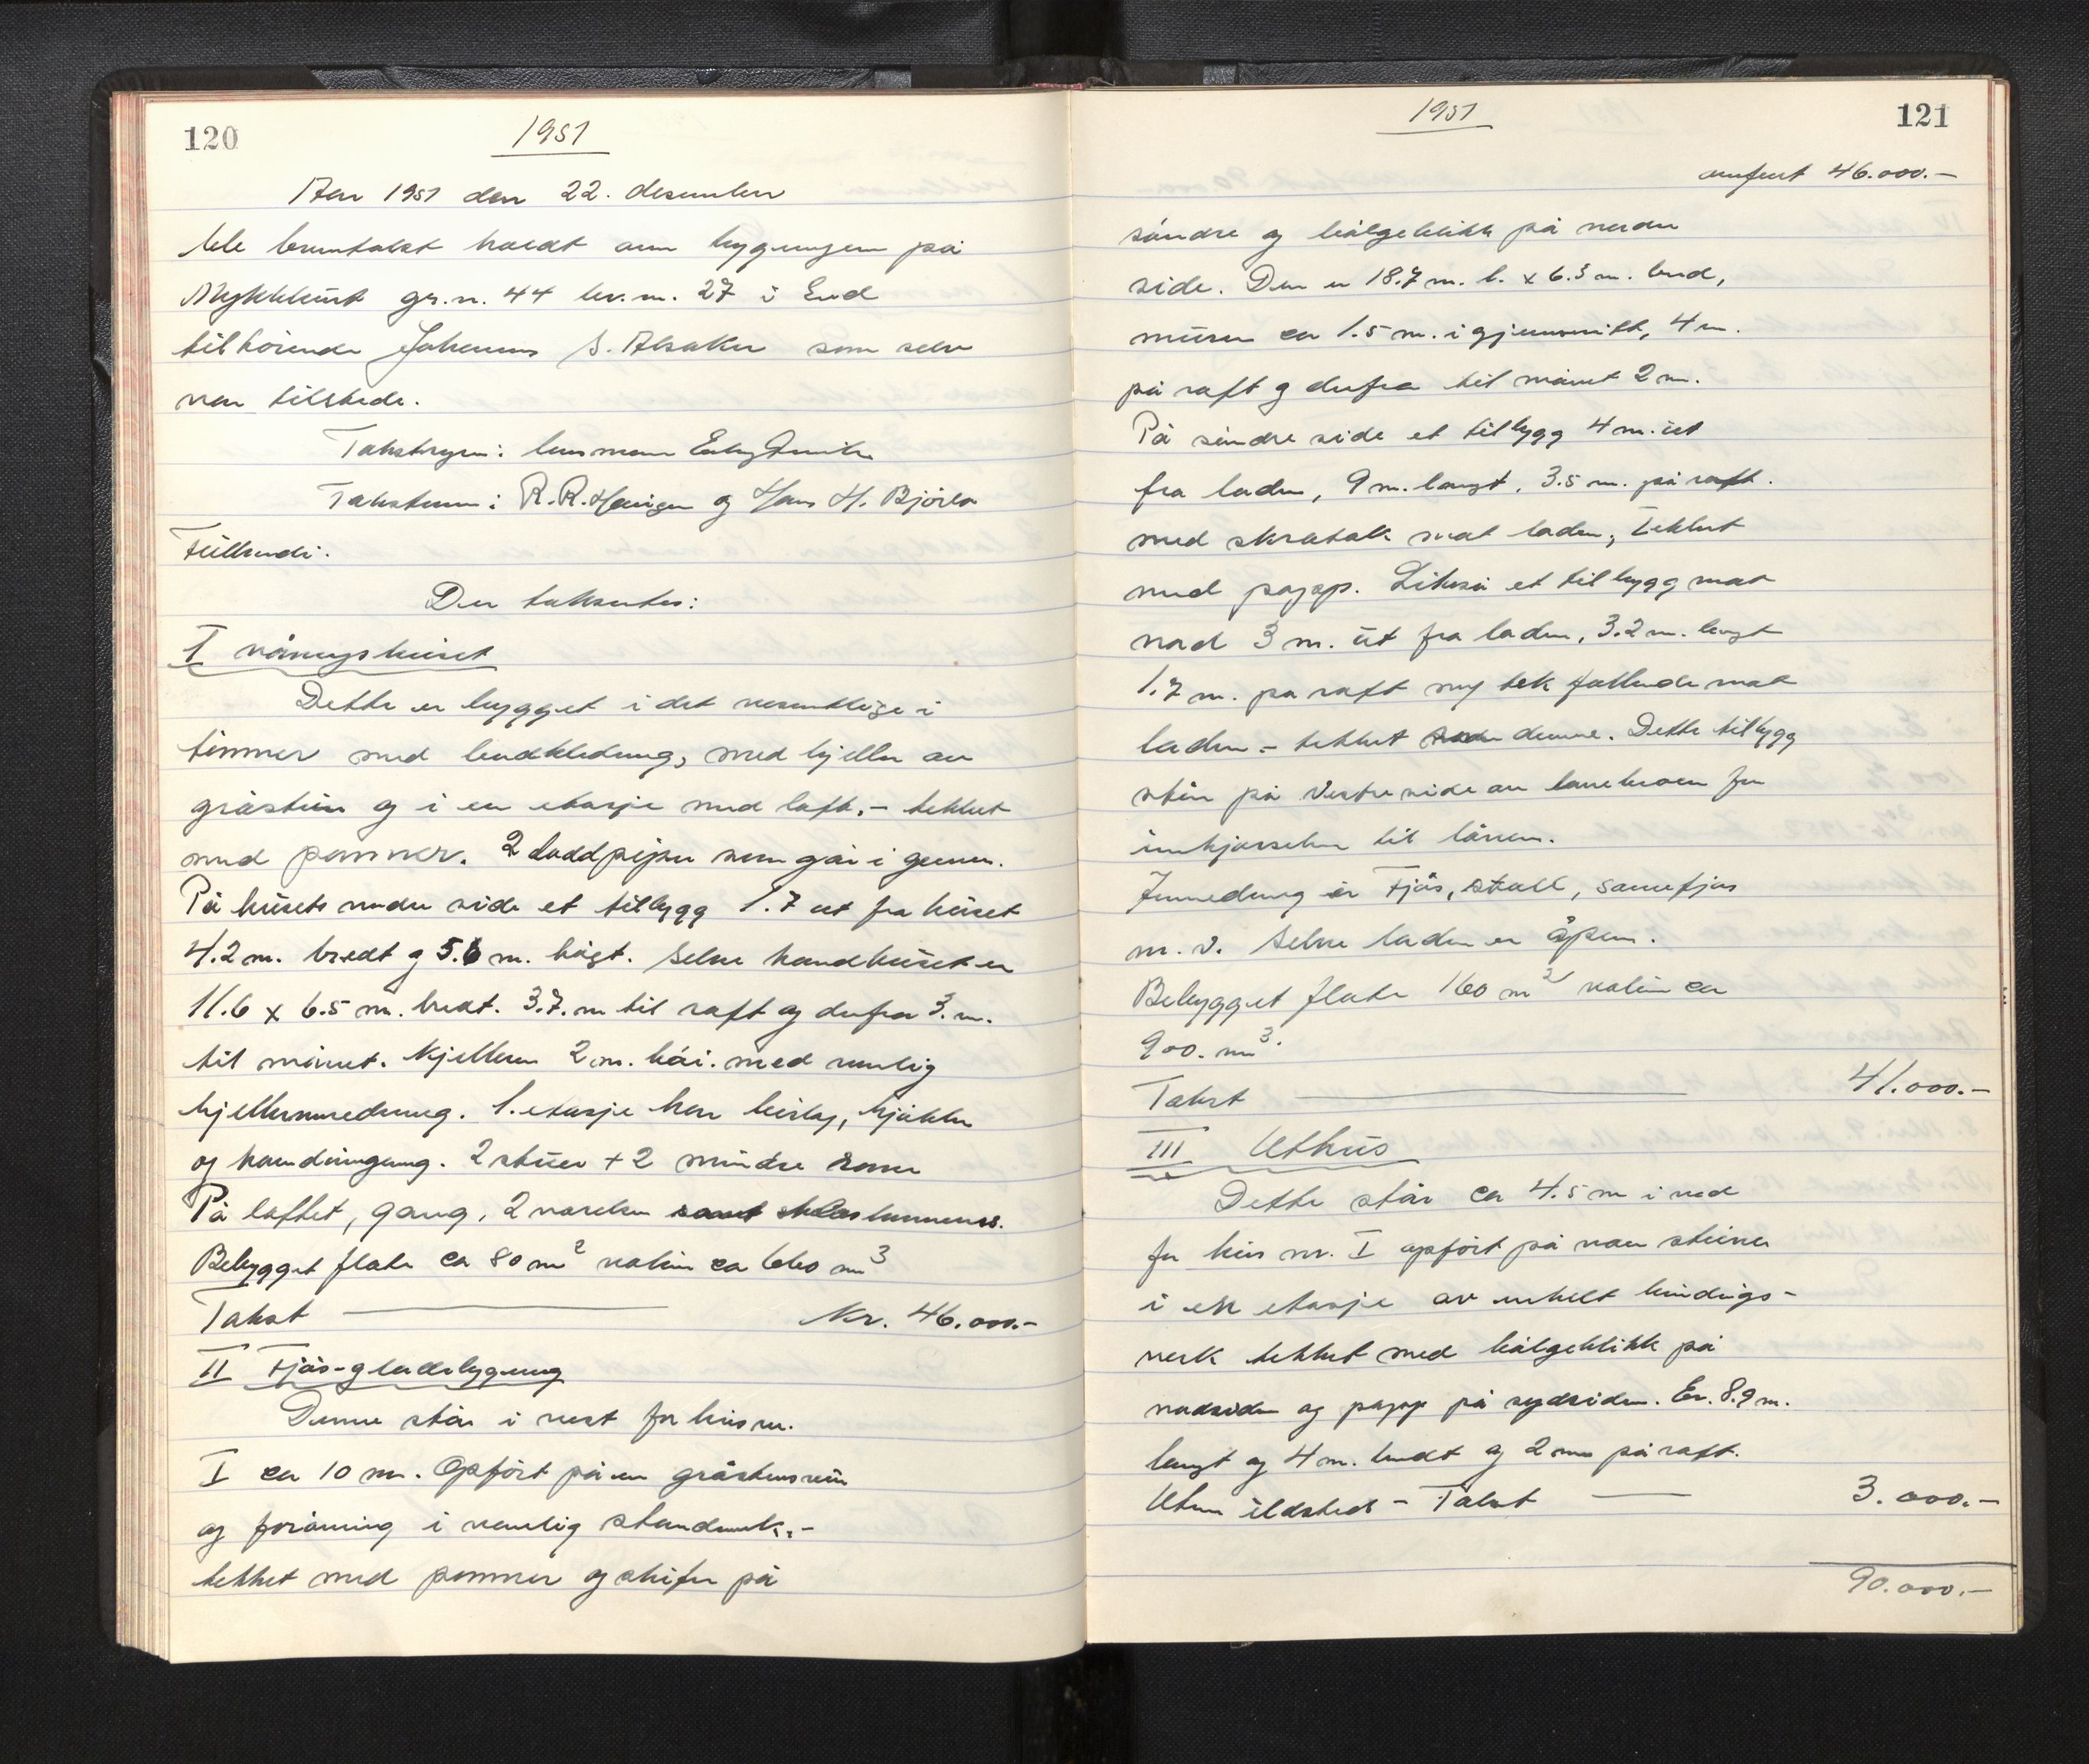 120
1951
Aar 1951 den 22. desember
ble branntakst holdt over bygningen på
Myklebust gr.n. 44 br.nr. 27 i Eid
tilhörende Johannes S. Alsaker som selv
var tilstede.
Takstbestyrer: lensmann
Takstmenn: R.R. Haugen og Hans H. Björlo
Der takseres:
I våningshuset
Dette er bygget i det vesentlige i
tömmer med bordkledning, med kjeller av
gråstein og i en etasje med loft, - tekket
med panner. 2 loddpiper som går i grunn.
På husets nordre side et tilbygg 1.7 ut fra huset
4.2 m. bredt og 5.6 m. högt. Selve hovedhuset er
11.6 x 6.5 m. bredt. 3.7. m til raft og derfra 3. m.
til mönet. Kjelleren 2 m. höi. med vanlig
kjellerinnredning. 1. etasje har bislag, kjökken
og hovedinngang. 2 stuer + 2 mindre rom
På loftet, gang, 2 værelser samt
Bebygget flate ca 80 m2 volum ca 660 m3
Takst — Kr. 46.000.-
II Fjös- og ladebygning
Denne står i vest for hus nr.
I ca 10 m. Opfört på en gråstensmur
og forövrig i vanlig standverk, -
tekket med panner og skifer på
1951
121
overfört 46.000.-
söndre og bölgeblikk på nordre
side. Den er 18.7 m. l. x 6.3 m. bred,
muren ca 1.5 m. i gjennomsnitt, 4 m.
på raft og derfra til mönet 2 m.
På söndre side et tilbygg 4 m. ut
fra laden, 9 m. langt, 3.5 m. på raft.
med skratak mot laden, tekket
med papp. Likeså et tilbygg mot
nord 3 m. ut fra laden, 3.2 m. langt
1.7 m. på raft og tak fallende mot
laden - tekket som denne. Dette tilbygg
står på vestre side av låvebroen for
innkjörselen til låven.
Innredning er Fjös, stall, sauefjös
m. v. Selve laden er åpen.
Bebygget flate 160 m2 volum ca
900. m3.
Takst — 41.000.-
III Uthus
Dette står ca 4.5 m i nord
for hus nr. I opfört på noen steiner
i en etasje av enkelt bindings-
verk tekket med bölgeblikk på
nordsiden og papp på sydsiden. Er. 8.9 m.
langt og 4 m. bredt og 2 m på raft.
Uten ildsted - Takst — 3.000.-
90.000.-